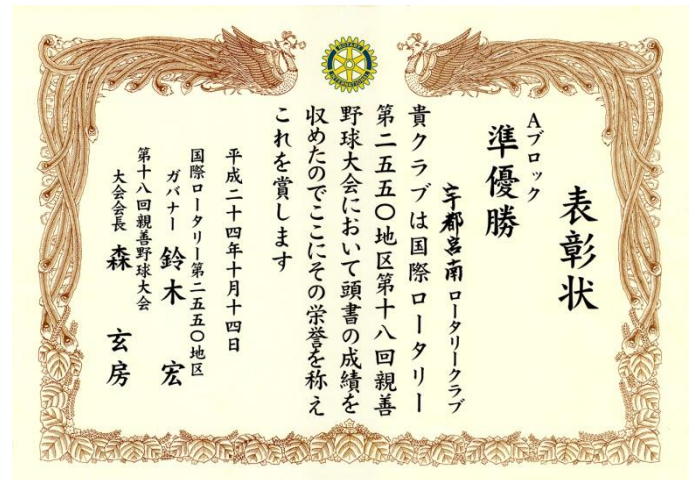 表彰状
Aブロック
準優勝
宇都宮南ロータリークラブ
貴クラブは国際ロータリー
第二五五〇地区第十八回親善
野球大会において頭書の成績を
収めたのでここにその栄誉を称え
これを賞します
平成二十四年十月十四日
国際ロータリー第二五五〇地区
ガバナー 鈴木 宏
第十八回親善野球大会
大会会長 森 玄房